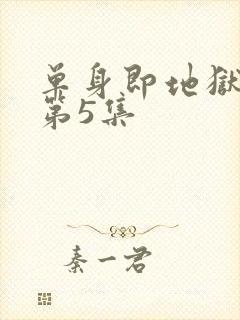 单身即地獄
第5集
秦一君